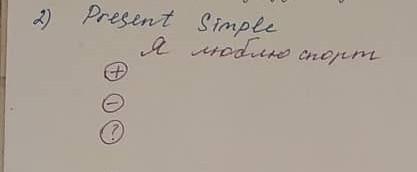 2) Present Simple
Я люблю спорт
+
-
?